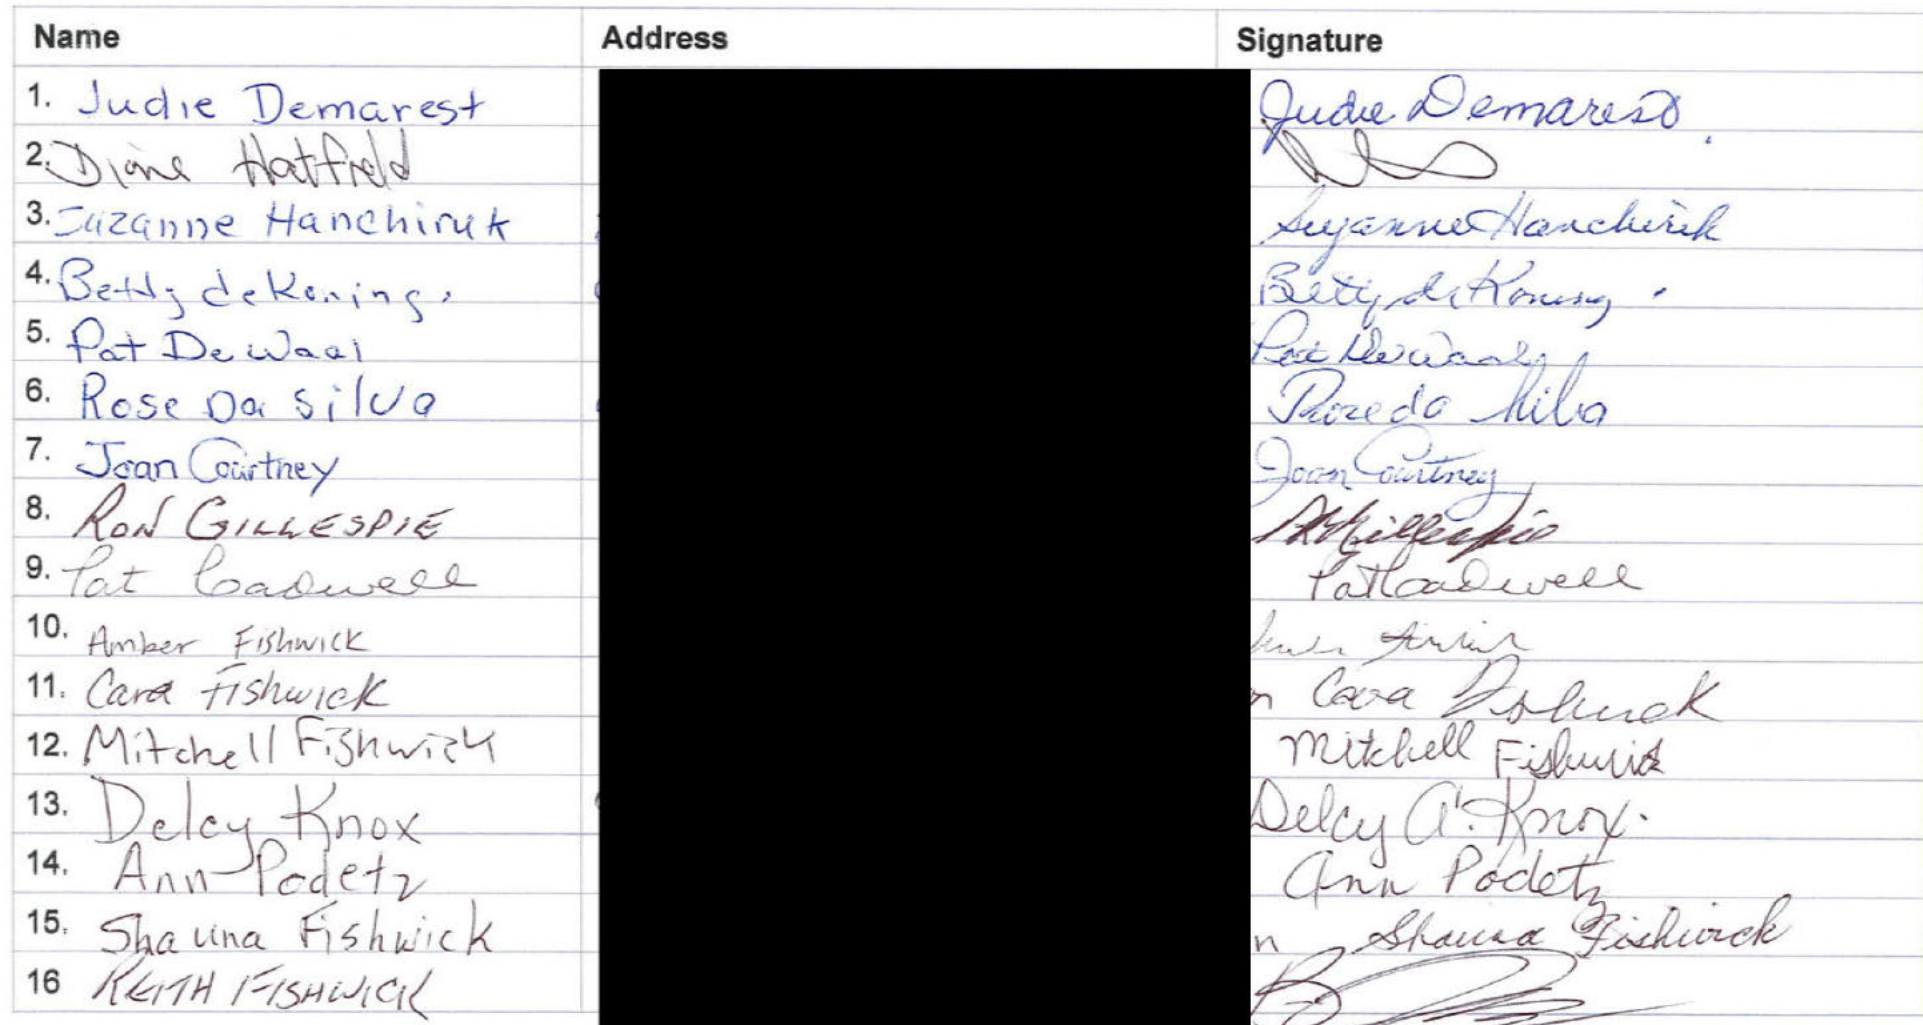 Name Address Signature
1. Judie Demarest Judie Demarest
2. Diane Hatfield
3. Suzanne Hanchiruk Suzanne Hanchiruk
4. Betty deKoning. Betty deKoning.
5. Pat DeWaal Pat DeWaal
6. Rose Da Silva Rose da Silva
7. Joan Courtney Joan Courtney
8. RON GILLESPIE Gillespie
9. Pat Cadwell Pat Cadwell
10. Amber Fishwick
11. Cara Fishwick n Cara Fishwick
12. Mitchell Fishwick Mitchell Fishwick
13. Delcy Knox Delcy A. Knox.
14. Ann Podetz Ann Podetz
15. Shauna Fishwick n Shauna Fishwick
16 KEITH FISHWICK